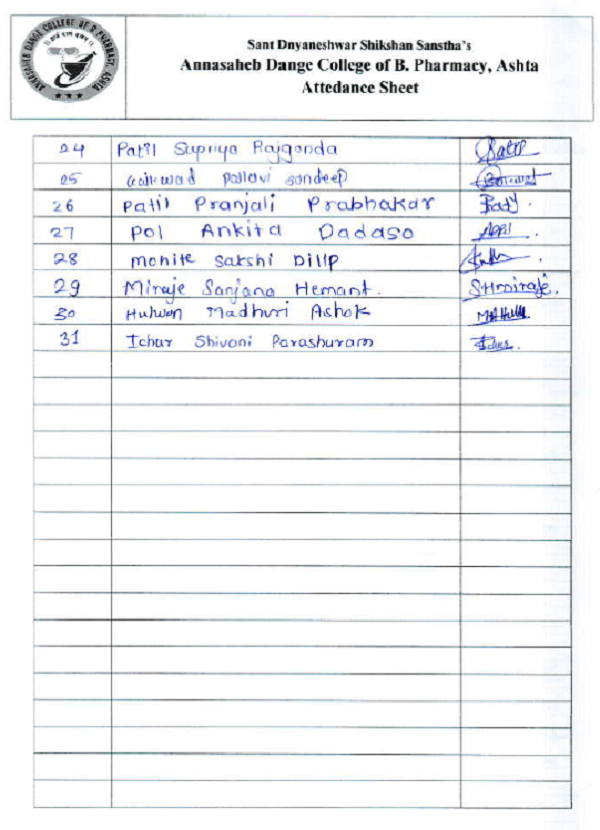 ANNASAHEB DANGE COLLEGE OF B PHARMACY, ASHTA
Sant Dnyaneshwar Shikshan Sanstha's
Annasaheb Dange College of B. Pharmacy, Ashta
Attedance Sheet
24 Patil Supriya Rajgonda
25 Gaikwad pallavi sandeep
26 Patil Pranjali Prabhakar
27 Pol Ankita Dadaso
28 mohite sakshi Dilip
29 Miraje Sanjana Hemant. SHmiraje.
30 Hulwan Madhuri Ashok
31 Ichar Shivani Parashuram